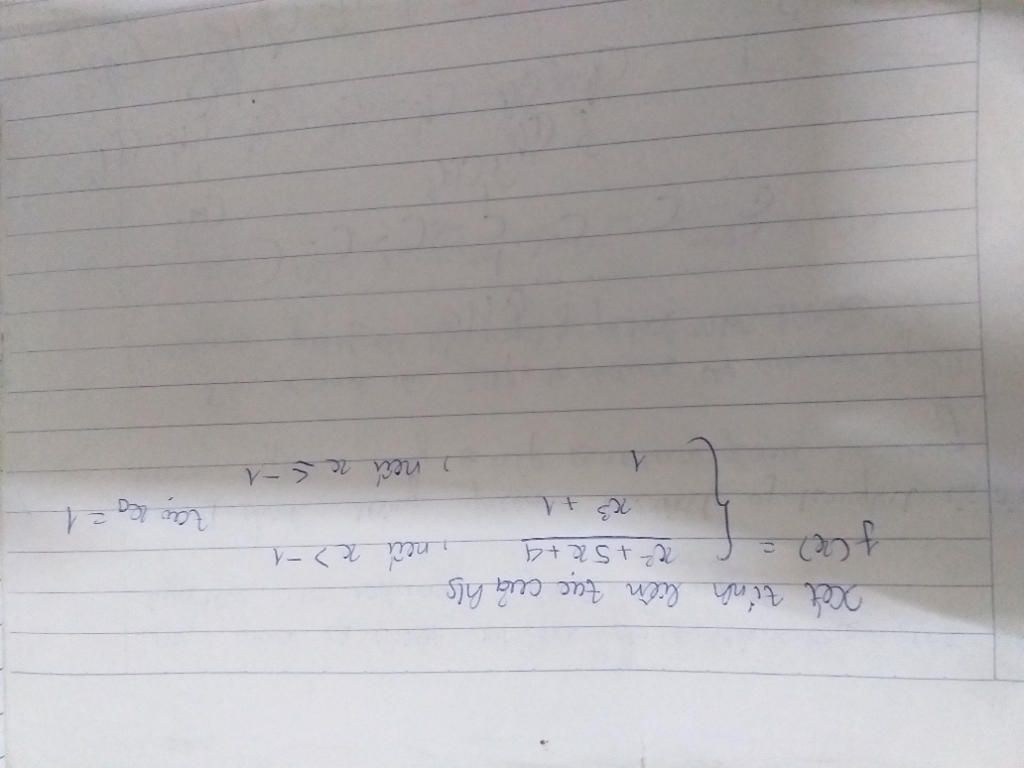 Xét tính liên tục của h/s
f(x) = { x² + 5x + 4 / x³ + 1 , nếu x > -1
1 , nếu x ≤ -1
tại x₀ = 1